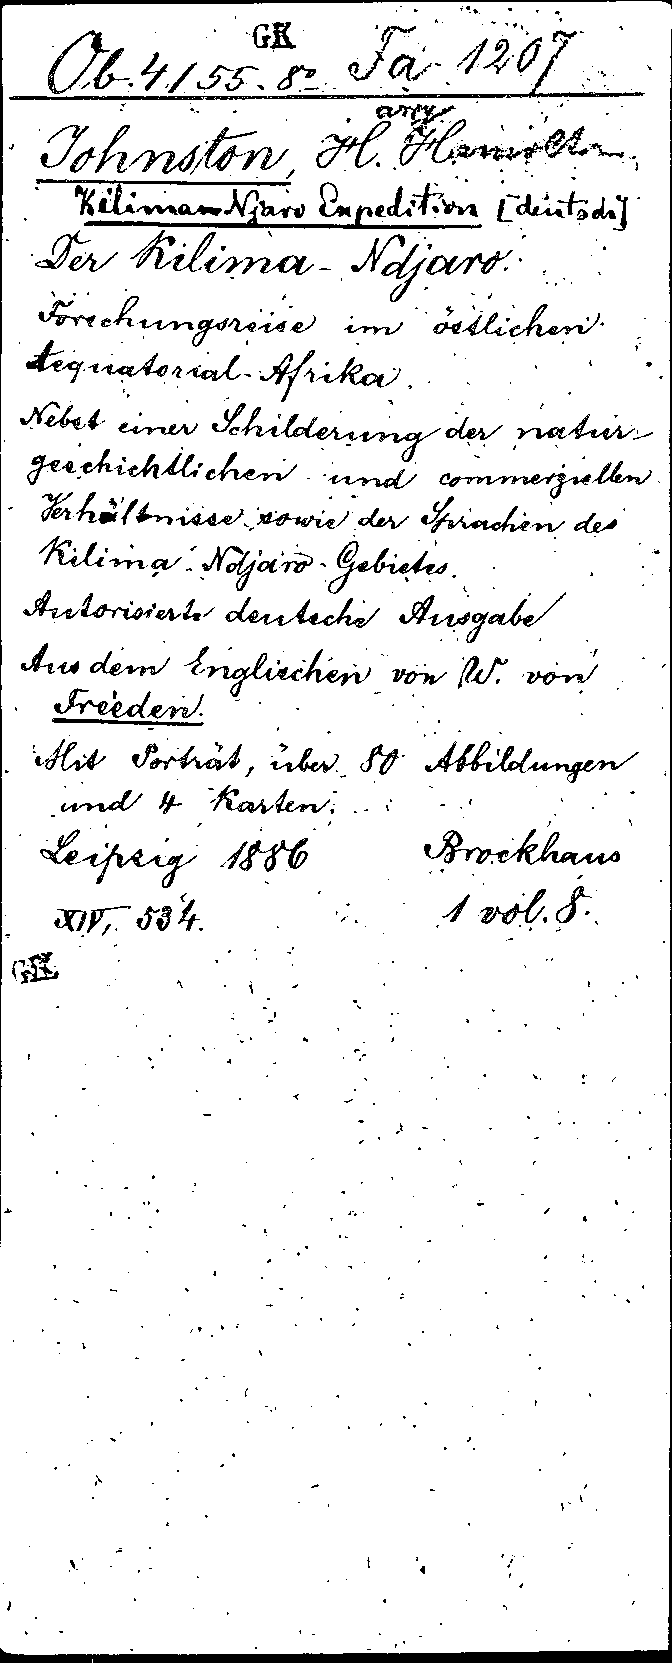 GK
Ob. 4155. 8° Fa 1207
arry
Johnston, H. Hamilton
Kilima-Njaro Expedition [deutsch]
Der Kilima-Ndjaro.
Forschungsreise im östlichen
Aequatorial-Afrika.
Nebst einer Schilderung der natur-
geschichtlichen und commerziellen
Verhältnisse sowie der Sprachen des
Kilima-Ndjaro-Gebietes.
Autorisierte deutsche Ausgabe
Aus dem Englischen von W. von
Freeden.
Mit Porträt, über 80 Abbildungen
und 4 Karten.
Leipzig 1886 Brockhaus
XIV, 534. 1 vol. 8.
GK